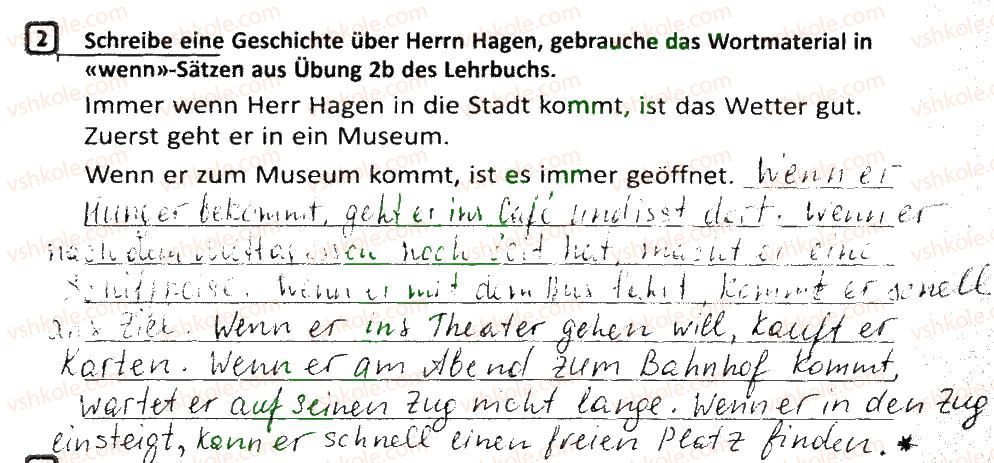 2 Schreibe eine Geschichte über Herrn Hagen, gebrauche das Wortmaterial in
«wenn»-Sätzen aus Übung 2b des Lehrbuchs.
Immer wenn Herr Hagen in die Stadt kommt, ist das Wetter gut.
Zuerst geht er in ein Museum.
Wenn er zum Museum kommt, ist es immer geöffnet. Wenn er
Hunger bekommt, geht er ins Café und isst dort. Wenn er
nach dem Mittagessen noch Zeit hat, macht er eine
Schiffreise. Wenn er mit dem Bus fährt, kommt er schnell
ans Ziel. Wenn er ins Theater gehen will, kauft er
Karten. Wenn er am Abend zum Bahnhof kommt,
wartet er auf seinen Zug nicht lange. Wenn er in den Zug
einsteigt, kann er schnell einen freien Platz finden. *